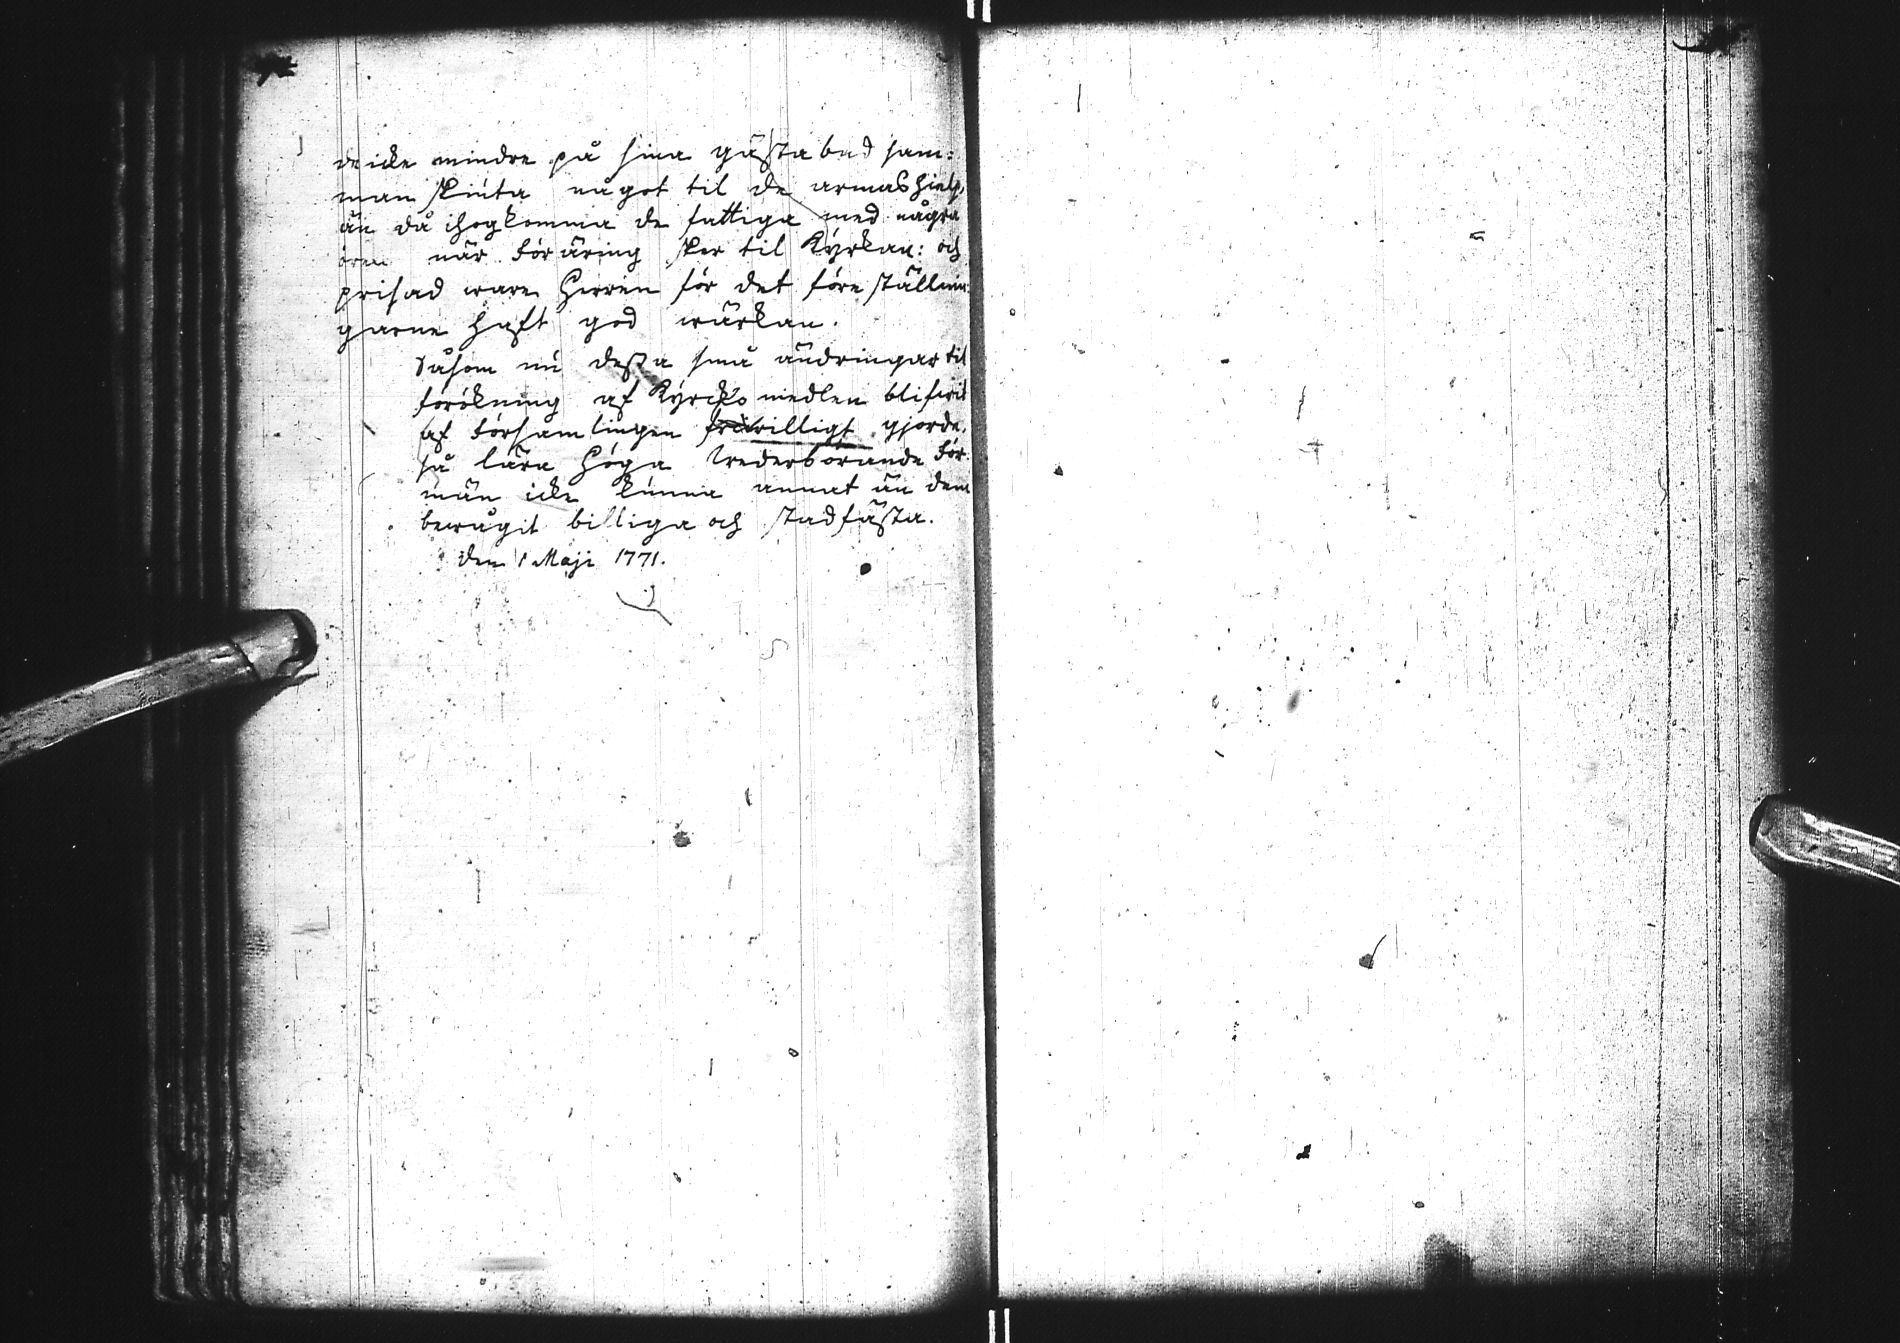 de icke mindre på sina gästabud sam-
man skiuta något til de armas hielp,
än då ihogkomma de fattiga med några
ören när föräring sker til Kyrkan: och
prisad ware Herren för det föreställnin-
garne haft god wärkan.
Såsom nu dessa små ändringar til
förökning af Kyrcko medlen blifwit
af Församlingen friwilligt gjorde,
så lära Höga Wederbörande För-
män icke kunna annat än dem
bewågit billiga och stadfästa.
den 1 Maji 1771.